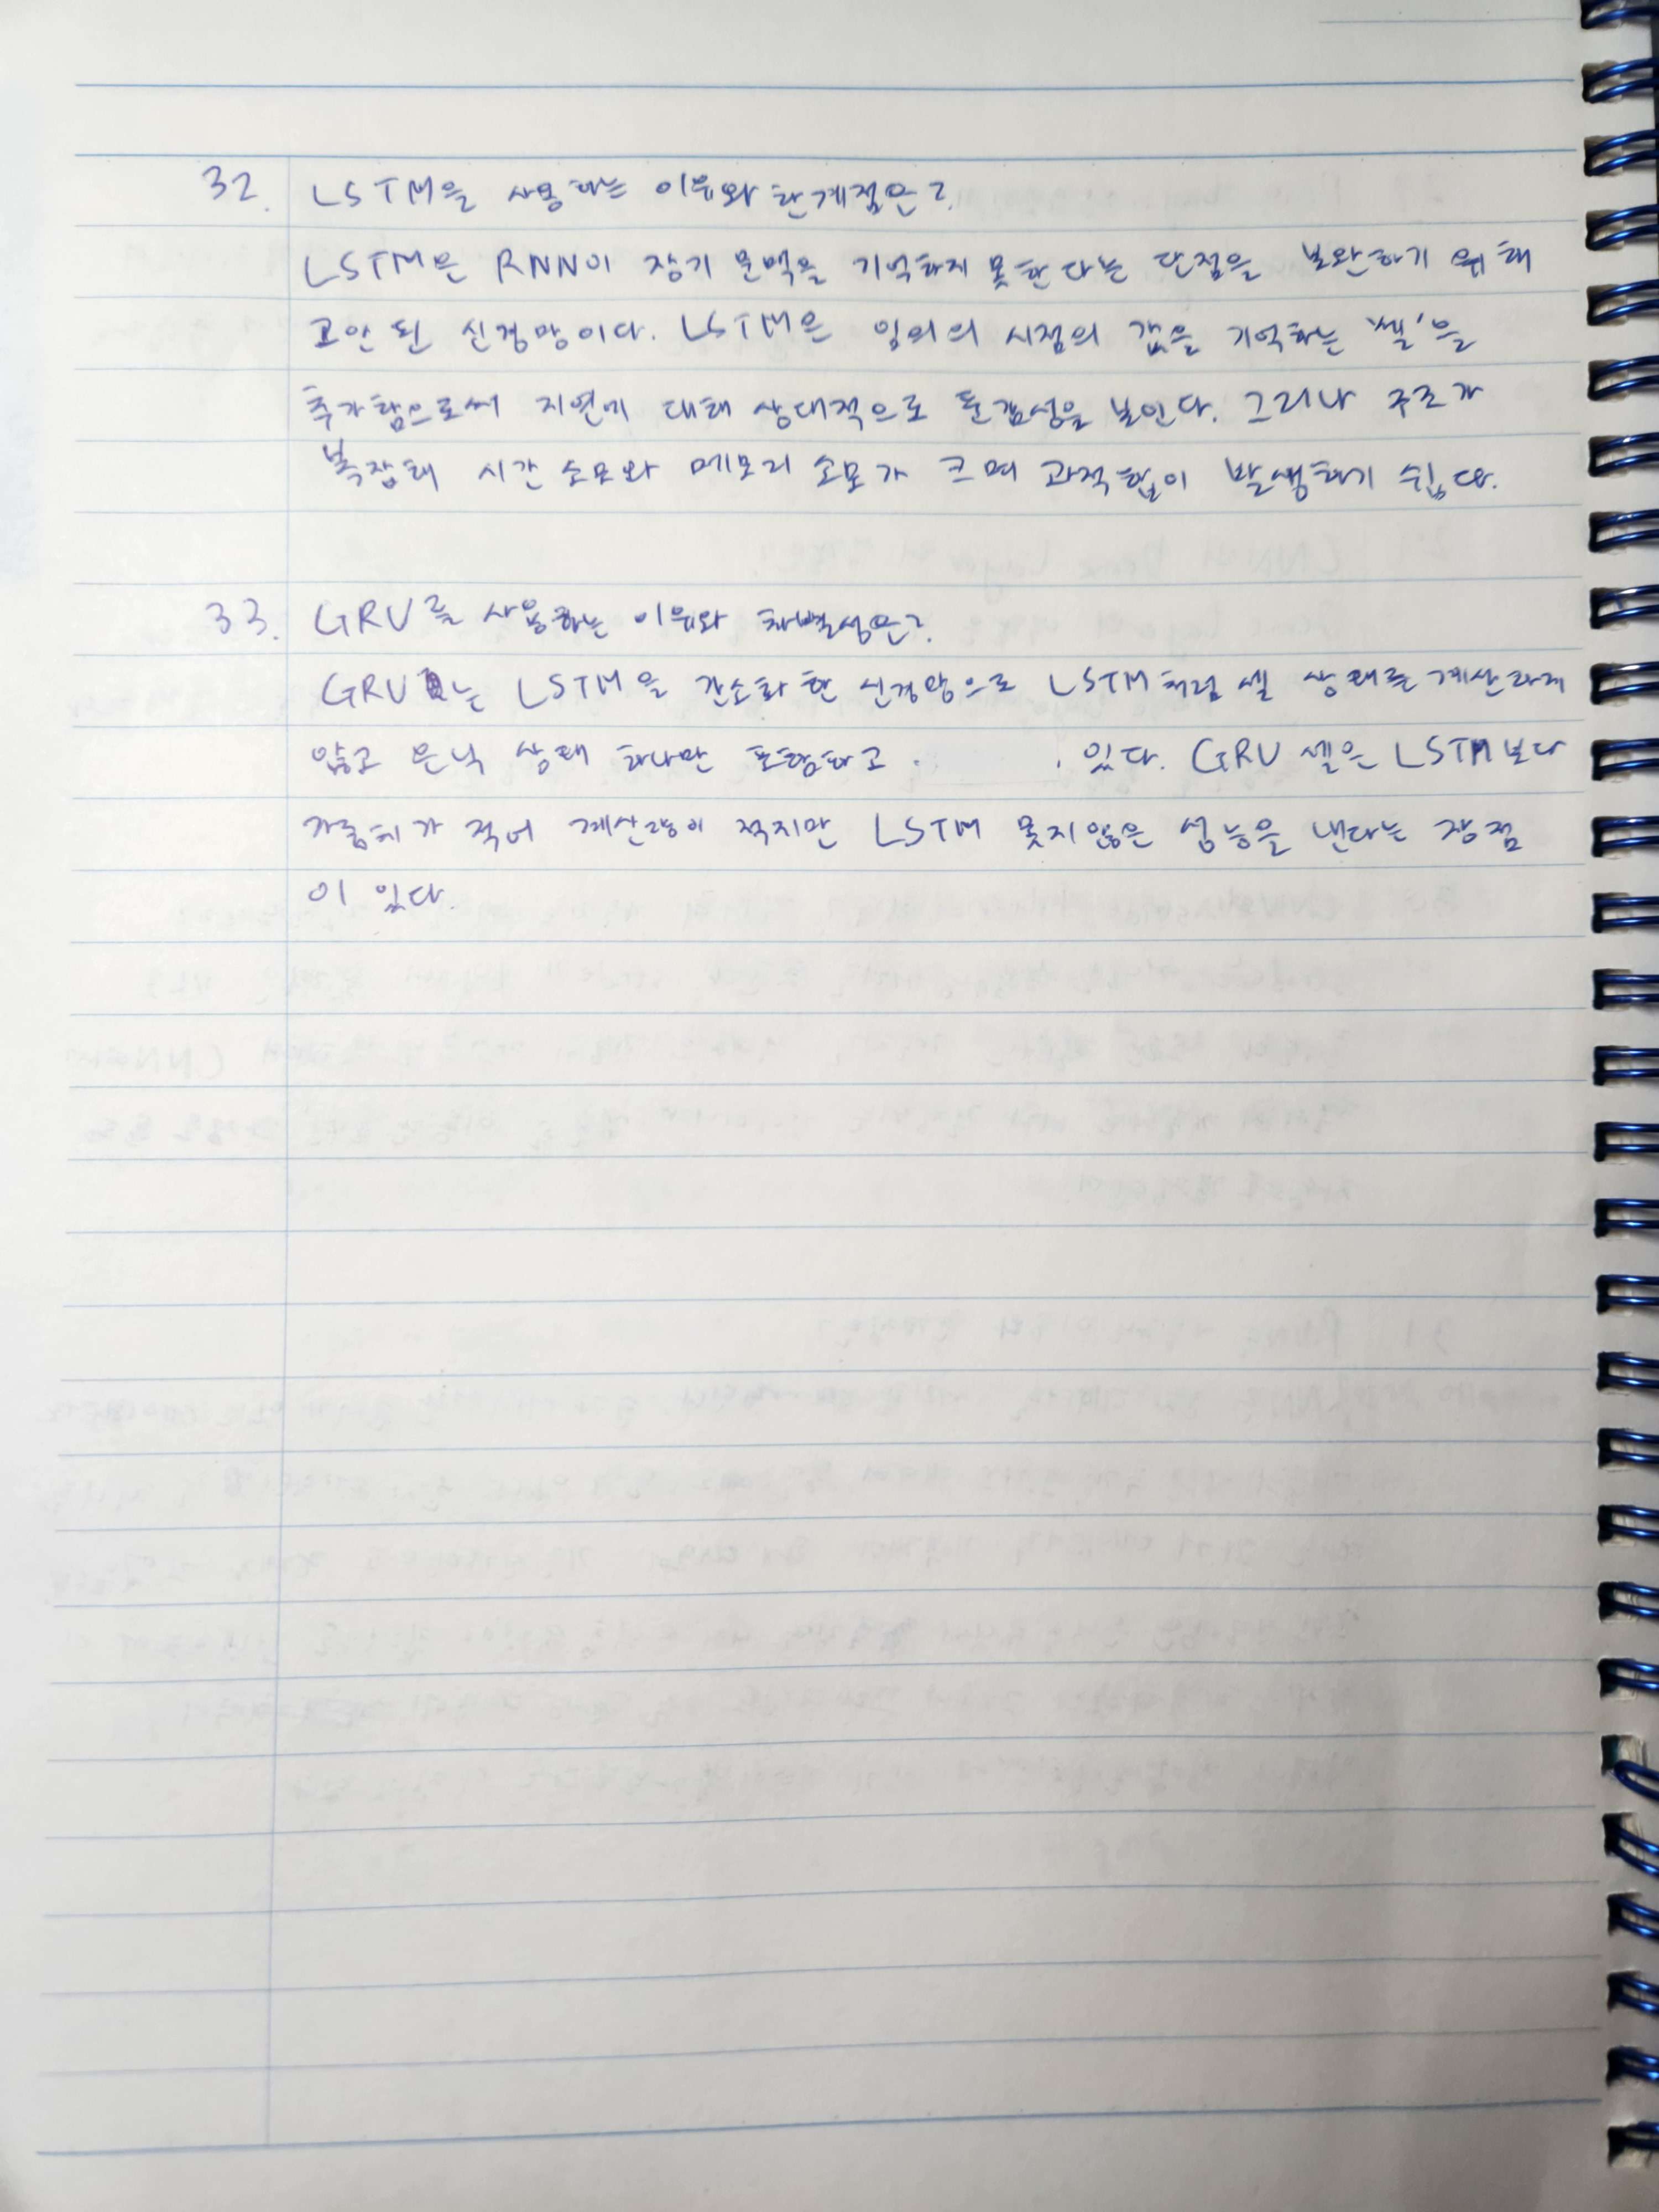 32. LSTM을 사용하는 이유와 한계점은?
LSTM은 RNN이 장기 문맥을 기억하지 못한다는 단점을 보완하기 위해
고안된 신경망이다. LSTM은 임의의 시점의 값을 기억하는 '셀'을
추가함으로써 지연에 대해 상대적으로 둔감성을 보인다. 그러나 구조가
복잡해 시간 소모와 메모리 소모가 크며 과적합이 발생하기 쉽다.
33. GRU를 사용하는 이유와 차별성은?
GRU는 LSTM을 간소화한 신경망으로 LSTM처럼 셀 상태를 계산하지
않고 은닉 상태 하나만 포함하고 있다. GRU 셀은 LSTM보다
가중치가 적어 계산량이 적지만 LSTM 못지않은 성능을 낸다는 장점
이 있다.